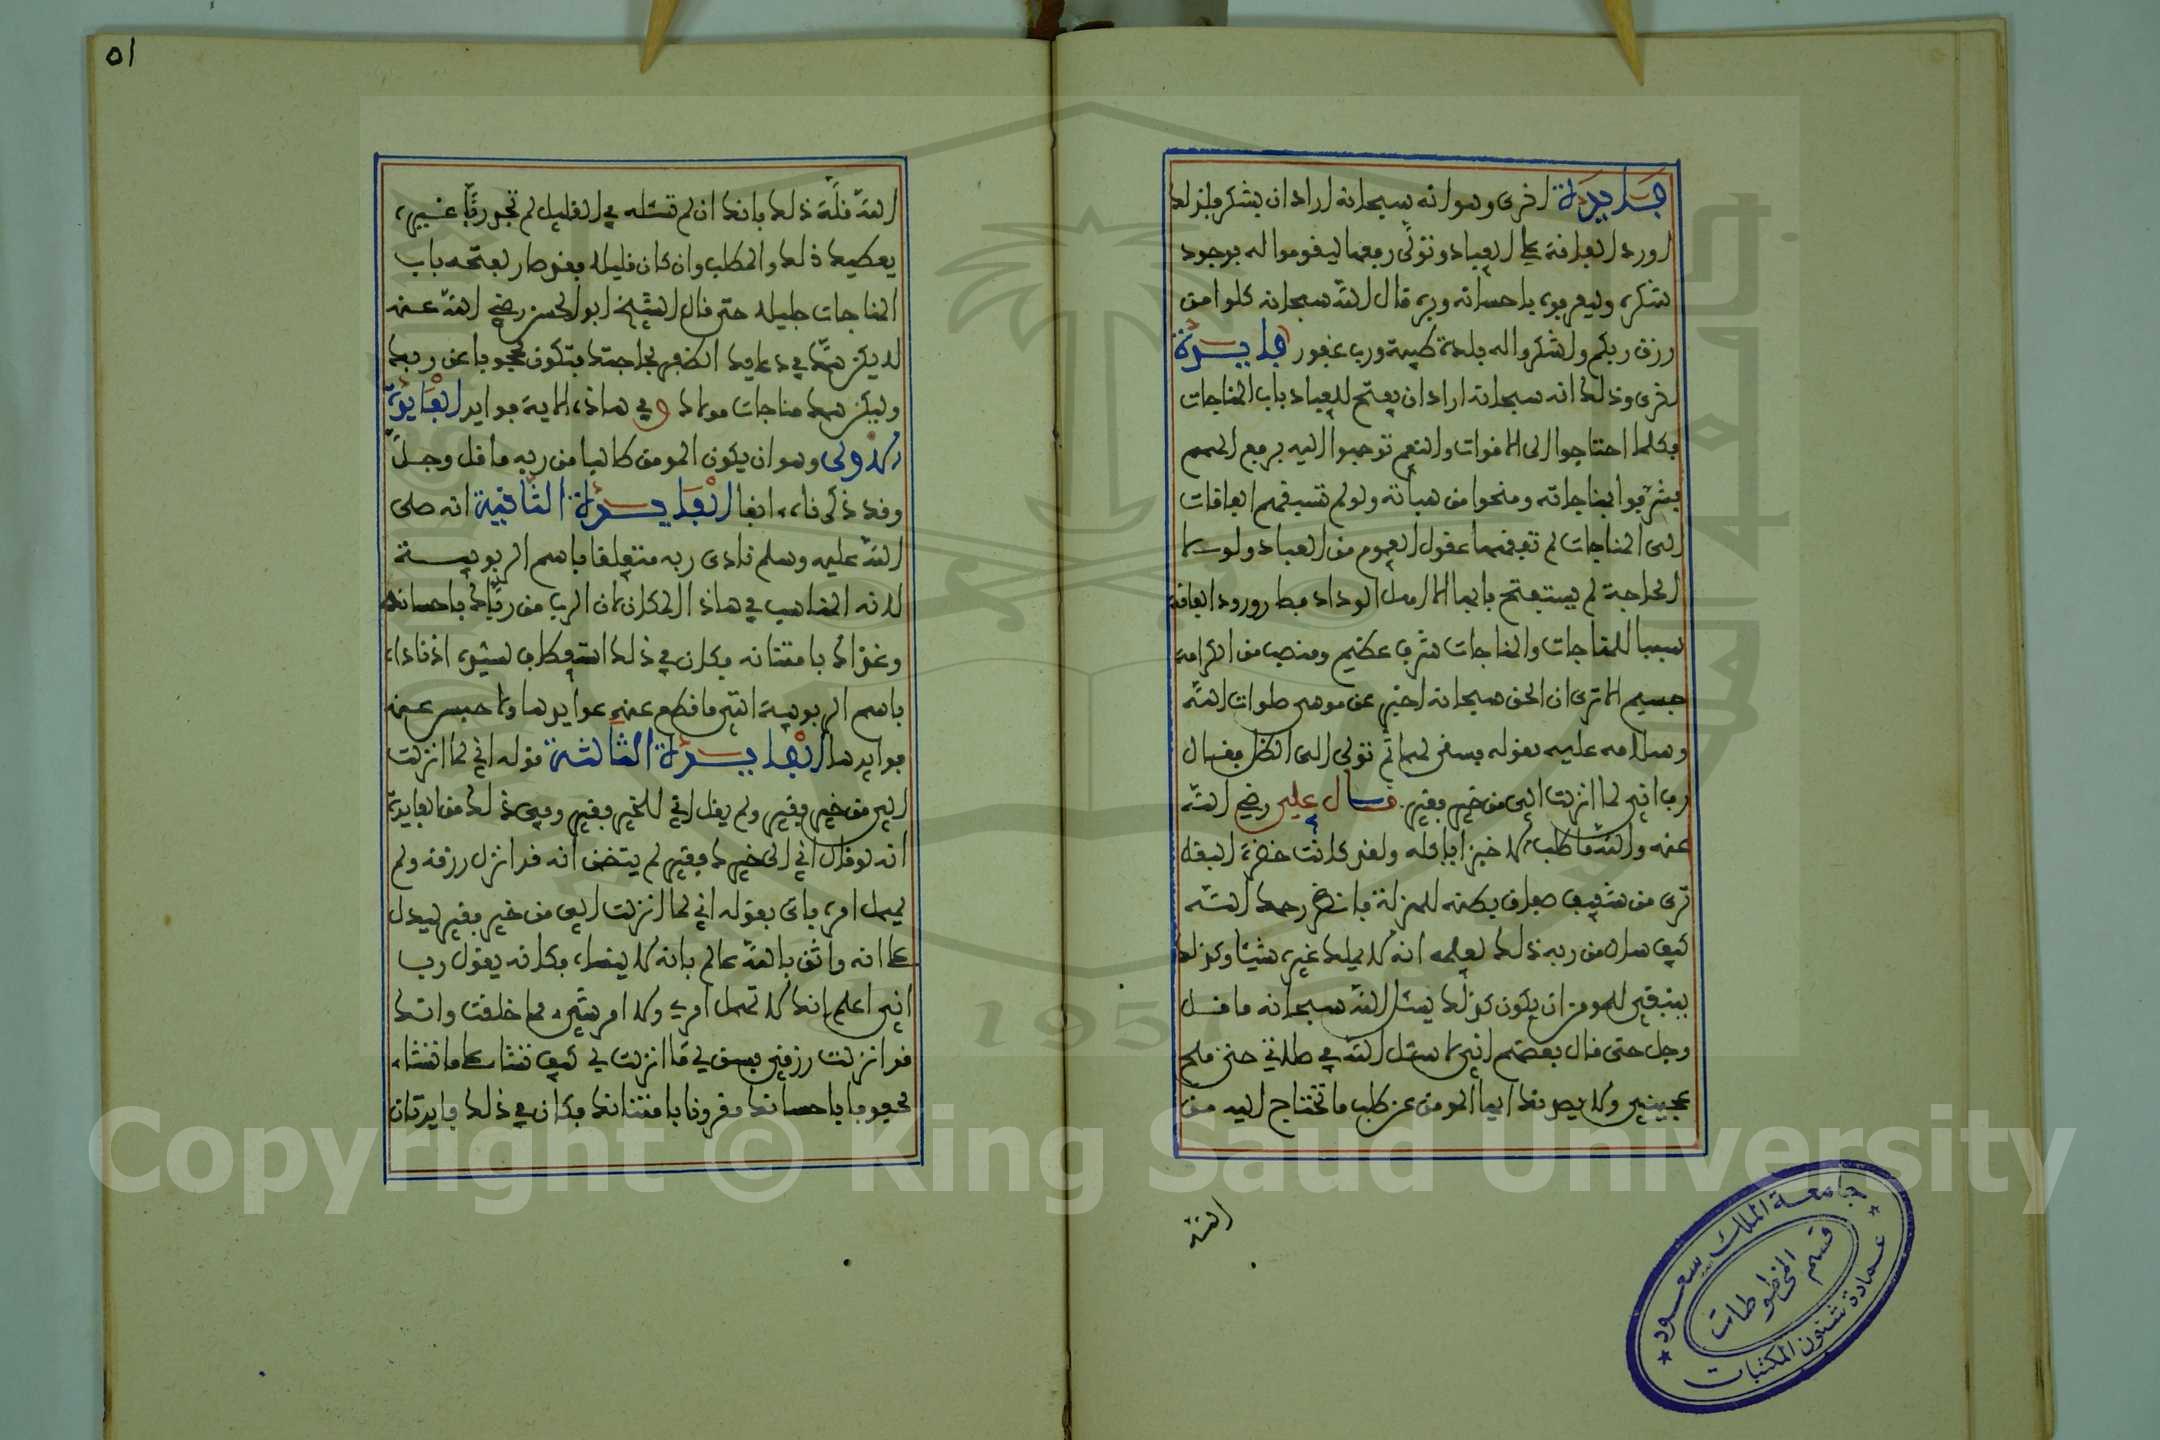 فايدة اخرى وهو انه سبحانه اراد ان يشكر فلذلك
اورد الفاقة على العباد وتولى رفعها ليقوموا له بوجود
شكره وليعرفوه باحسانه وبره قال الله سبحانه كلوا من
رزق ربكم واشكروا له بلدة طيبة ورب غفور فايدة
اخرى وذلك انه سبحانه اراد ان يفتح للعباد باب المناجات
فكلما احتاجوا الى الاقوات والنعم توجهوا اليه برفع الهمم
فشرفوا بمناجاته ومنحوا من هباته ولو لم تسقهم الفاقات
الى المناجات لم تفقهها عقول العموم من العباد ولولا
الحاجة لم يستفتح بابها الا اهل الوداد فصار ورود الفاقة
سببا للمناجات والمناجات شرف عظيم ومنصب من الكرامة
جسيم الا ترى ان الحق سبحانه اخبر عن موسى صلوات الله
وسلامه عليه بقوله فسقى لهما ثم تولى الى الظل فقال
رب اني لما انزلت الي من خير فقير. قال علي رضي الله
عنه والله ما طلب الا خبزا ياكله ولقد كانت خضرة البقل
ترى من شفيف صفاق بطنه للهزلة فانظر رحمك الله
كيف سال من ربه ذلك لعلمه انه لا يملك غيره شيئا وكذلك
ينبغي للمومن ان يكون كذلك يسئل الله سبحانه ما قل
وجل حتى قال بعضهم اني لاسئل الله في صلاتي حتى ملح
عجيني ولا يصدنك ايها المومن عن طلب ما تحتاج اليه من
الله
٥١
الله قلة ذلك بانك ان لم تسئله في القليل لم تجد ربا غيره
يعطيك ذلك والمطلب وان كان قليلا فقد صار لفتحه باب
المناجات جليلا حتى قال الشيخ ابو الحسن رضي الله عنه
لا يكن همك في دعايك الظفر بحاجتك فتكون محجوبا عن ربك
وليكن همك مناجات مولاك وفي هاذه الاية فوايد الفايدة
الاولى وهو ان يكون المومن طالبا من ربه ما قل وجل
وقد ذكرناه انفا الفايدة الثانية انه صلى
الله عليه وسلم نادى ربه متعلقا باسم الربوبية
لانه المناسب في هاذا المكان لان الرب من رباك باحسانه
وغذاك بامتنانه فكان في ذلك استعطاف لسيده اذ ناداه
باسم الربوبية التي ما قطع عنه عوايدها ولا حبس عنه
فوايدها الفايدة الثالثة قوله اني لما انزلت
الي من خير فقير ولم يقل اني للخير فقير وفي ذلك من الفايدة
انه لو قال اني الى خيرك فقير لم يتضمن انه قد انزل رزقه ولم
يهمل امره فاتى بقوله اني لما انزلت الي من خير فقير ليدل
على انه واثق بالله عالم بانه لا ينساه فكانه يقول رب
اني اعلم انك لا تهمل امري ولا امر شيء مما خلقت وانك
قد انزلت رزقي فسق لي ما انزلت لي كيف تشا على ما تشاء
محفوفا باحسانك مقرونا بامتنانك فكان في ذلك فايدتان
جامعة الملك سعود
عمادة شئون المكتبات
قسم المخطوطات
1957
Copyright © King Saud University